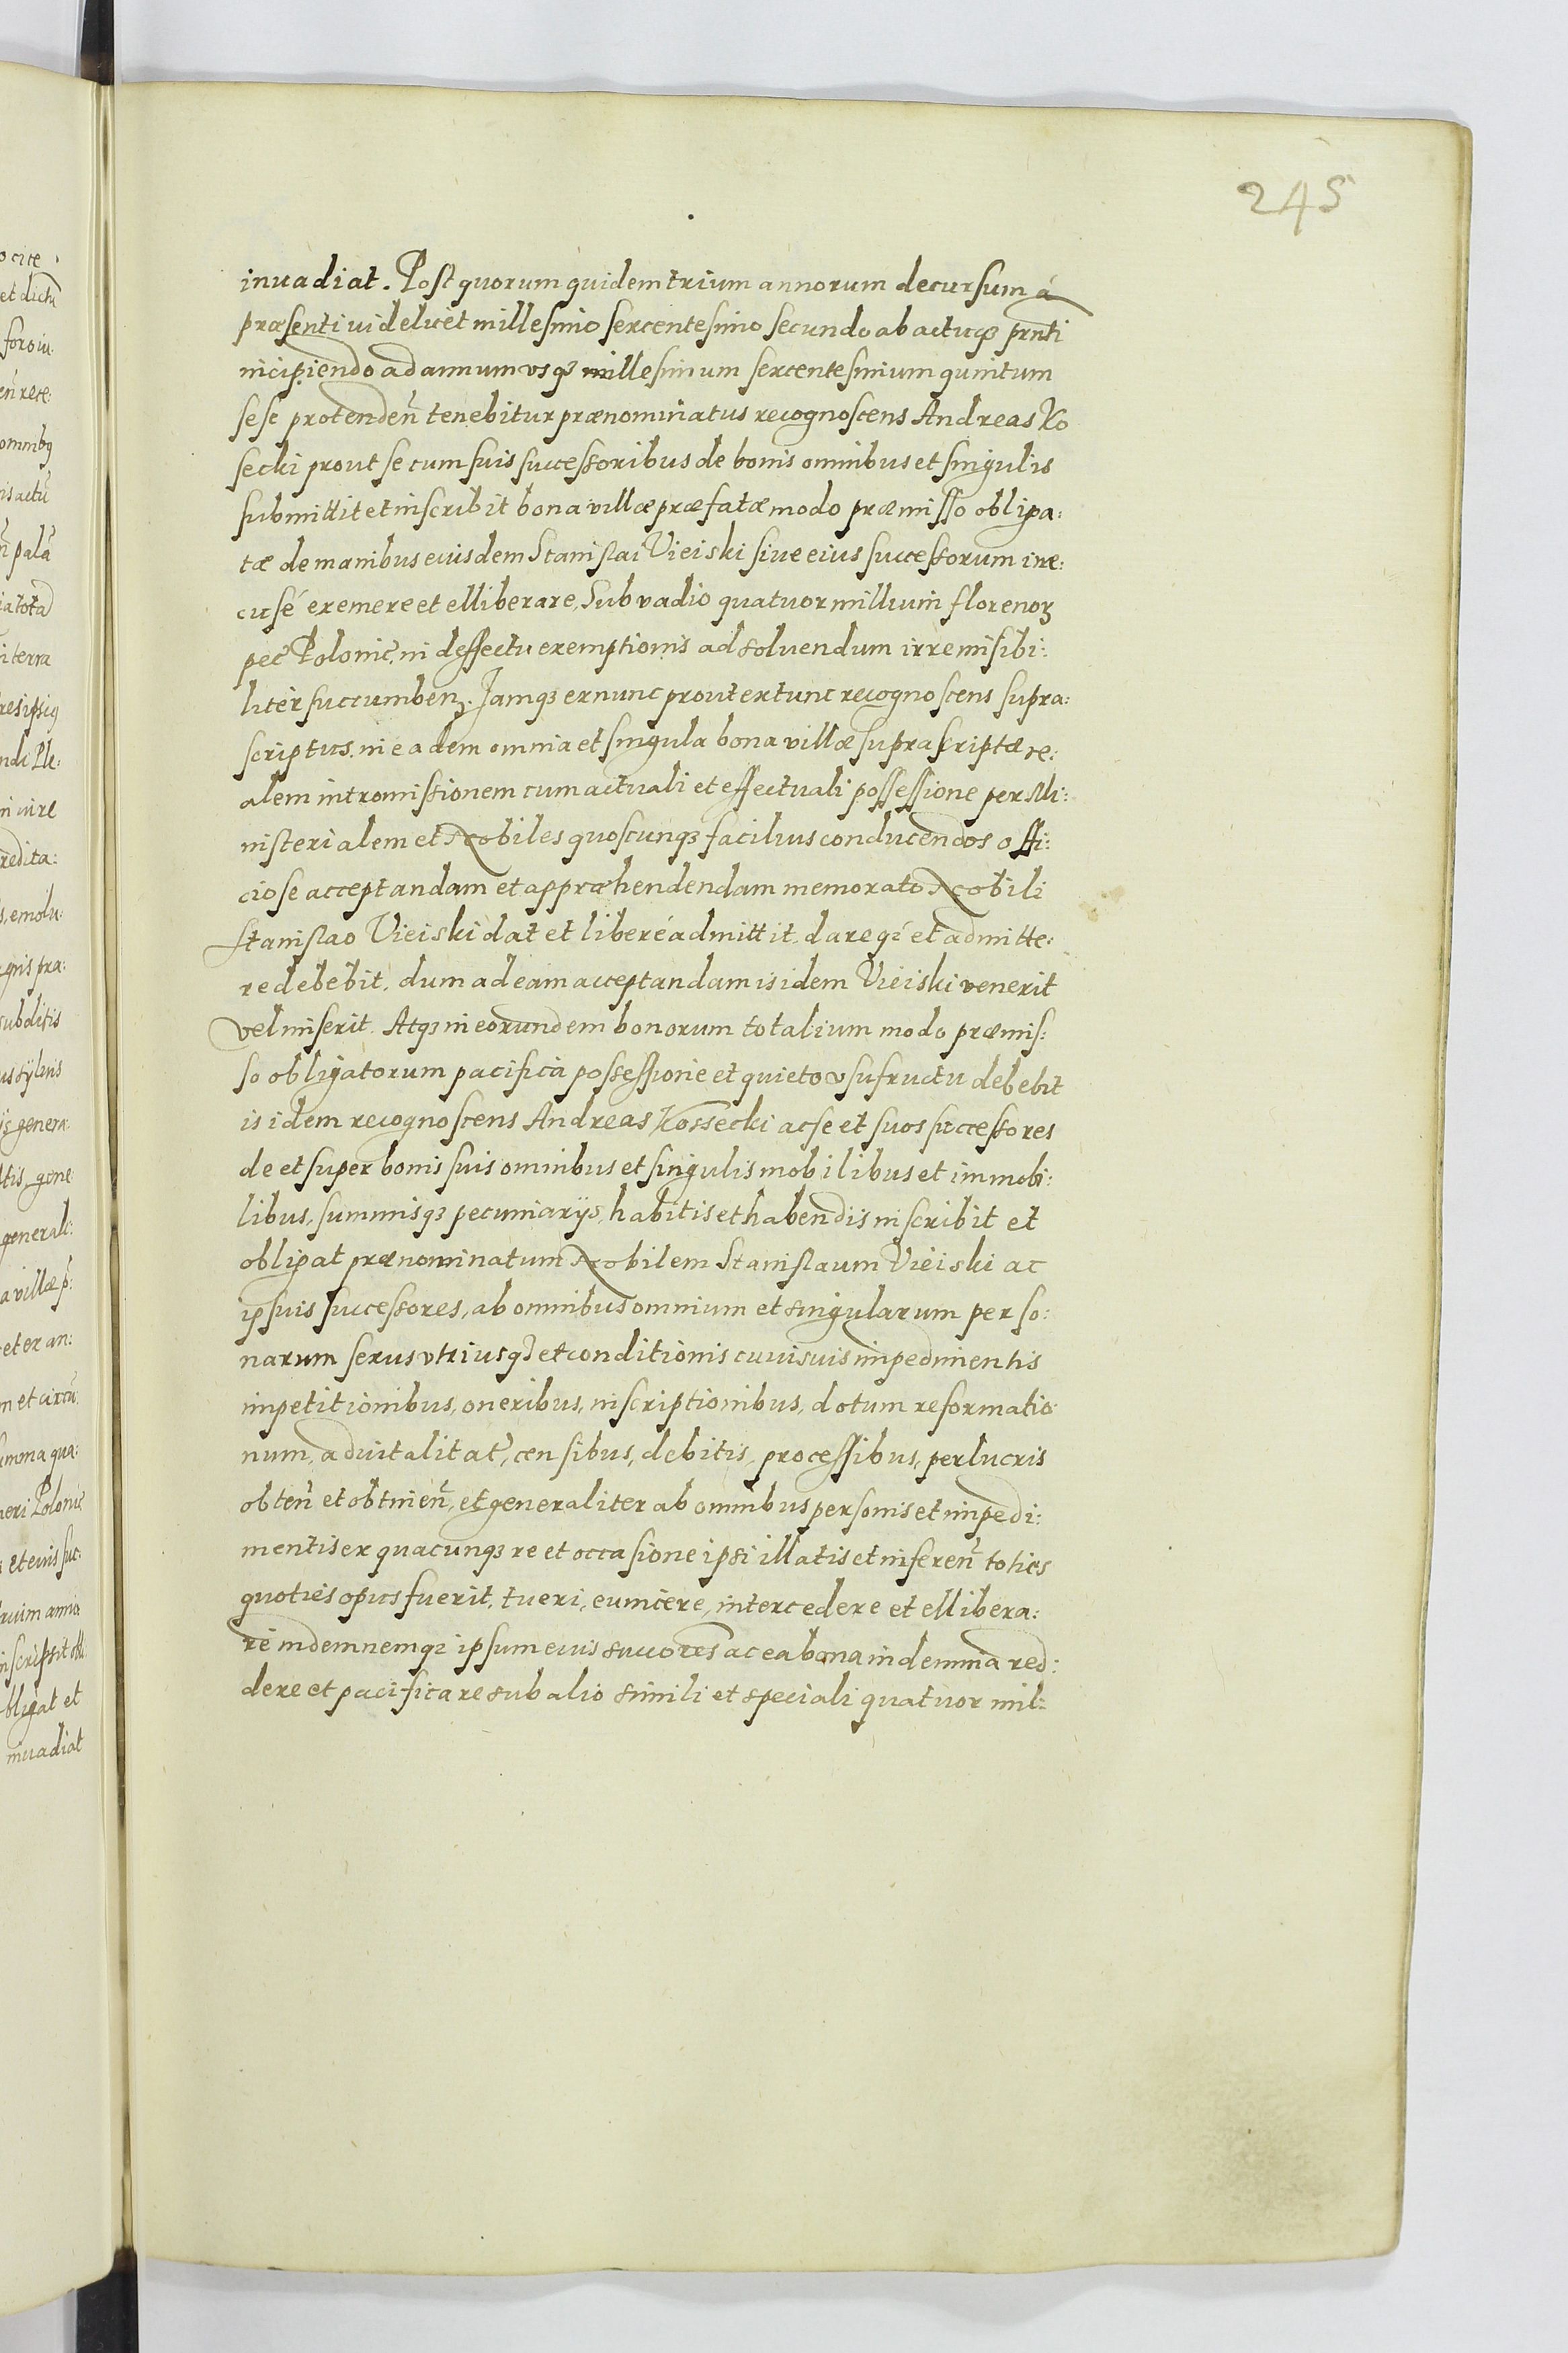 245
inuadiat. Post quorum quidem trium annorum decursum á
præsenti uidelicet millesimo sexcentesimo secundo ab actuq3 prnti
incipiendo ad annum vsq3 millesimum sexcentesimum quintum
sese protenden̄ tenebitur prænominatus recognoscens Andreas Ko
secki prout se cum suis successoribus de bonis omnibus et singulis
submittit et inscribit bona villæ præfatæ modo præmisso obliga:
tæ de manibus eiusdem Stanislai Vieiski siue eius successorum irre:
cusé exemere et elliberare, Sub vadio quatuor millium florenoꝝ
pec̄ Polonic̄, in deffectu exemptionis ad soluendum irremisibi:
liter succumbenꝫ. Jamq3 ex nunc prout ex tunc recognoscens supra:
scriptus, in eadem omnia et singula bona villæ suprascriptæ re:
alem intromissionem cum actuali et effectuali possessione per Mi:
nisterialem et Nobiles quoscunq3 facilius conducendos offi:
ciose acceptandam et appræhendendam memorato Nobili
Stanislao Vieiski dat et liberé admittit, dareq3 et admitte:
re debebit, dum ad eam acceptandam is idem Vieiski venerit
vel miserit. Atq3 in eorundem bonorum totalium modo præmis:
so obligatorum pacifica possessione et quieto vsufructu debebit
is idem recognoscens Andreas Kossecki ac se et suos successores
de et super bonis suis omnibus et singulis mobilibus et immobi:
libus, summisq3 pecuniarijs, habitis et habendis inscribit et
obligat prænominatum Nobilem Stanislaum Vieiski ac
ipsuis successores, ab omnibus omnium et singularum perso:
narum sexus vtriusq3 et conditionis cuiusuis impedimentis
impetitionibus, oneribus, inscriptionibus, dotum reformatio
num, aduitalitat̄, censibus, debitis, processibus, perlucris
obten̄ et obtinen̄, et generaliter ab omnibus personis et impedi:
mentis ex quacunq3 re et occasione ipsi illatis et inferen̄ toties
quoties opus fuerit, tueri, euincere, intercedere et ellibera:
re indemnemq3 ipsum eius succores ac ea bona indemnia red:
dere et pacificare sub alio simili et speciali quatuor mil: